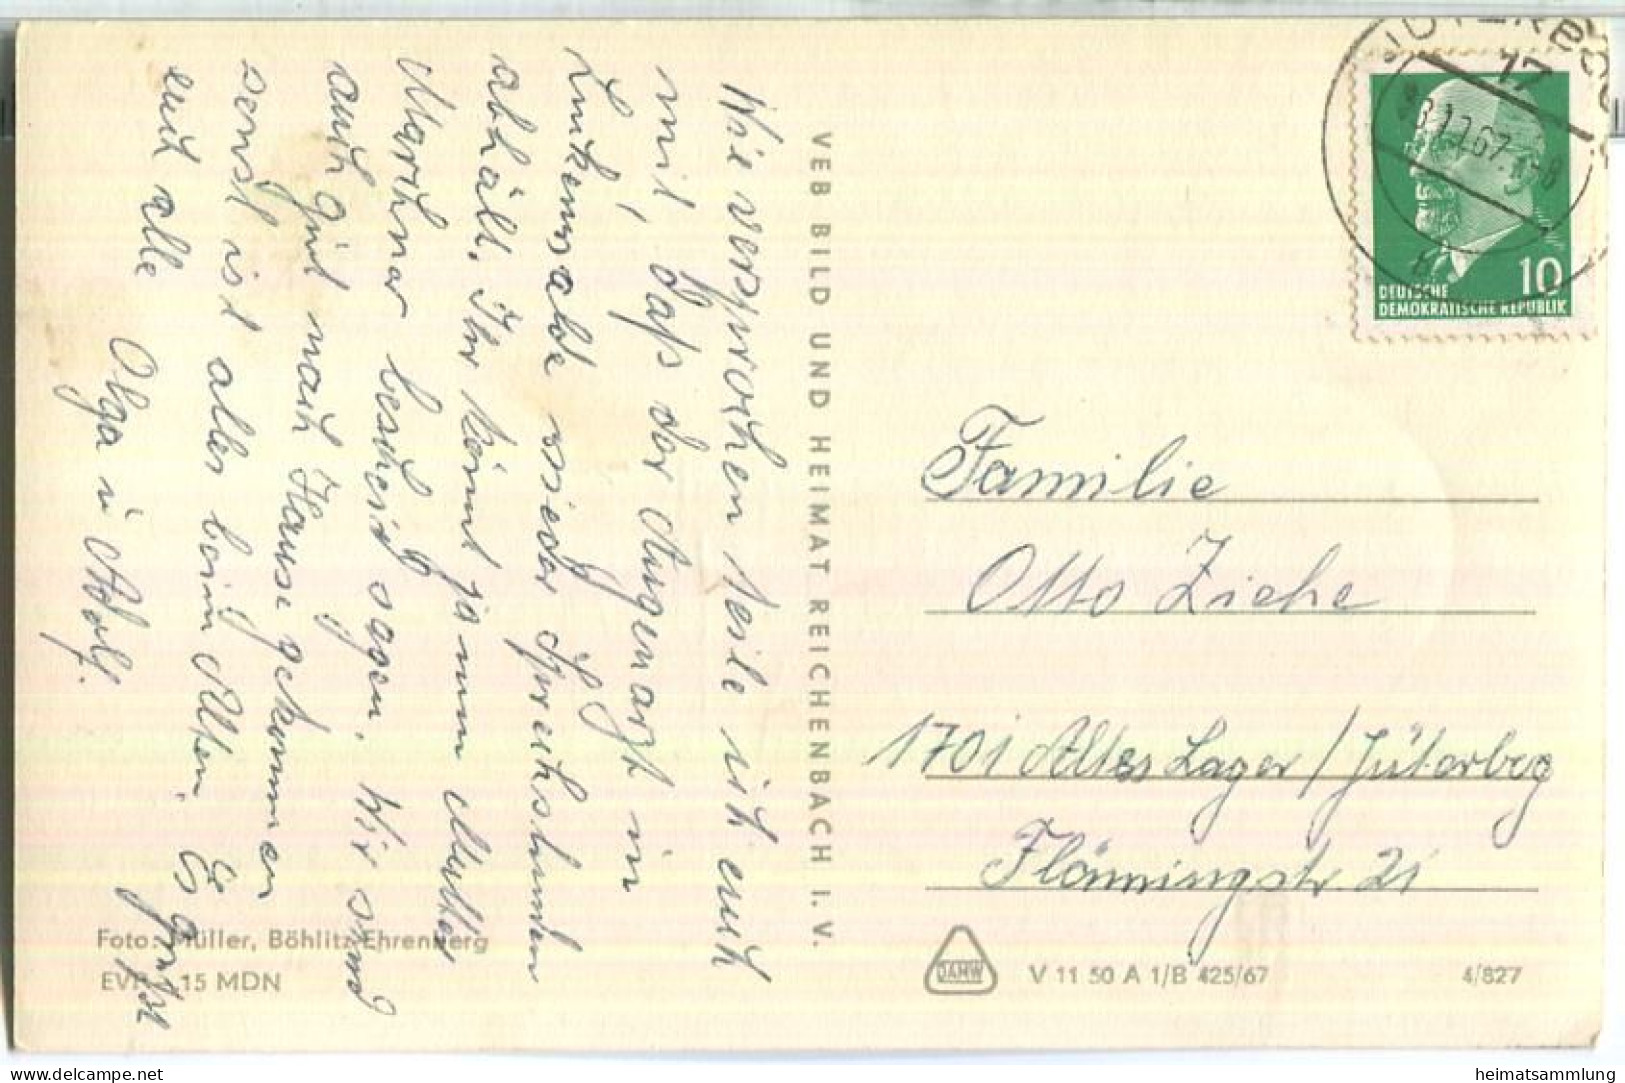 Wie versprochen teile ich euch
mit, daß der Augenarzt in
Luckenwalde wieder Sprechstunden
abhält. Ihr könnt ja nun Mutter
Marthner bescheid sagen. Wir sind
auch gut nach Hause gekommen
sonst ist alles beim Alten. Es grüßt
euch alle
Olga u Adolf.
VEB BILD UND HEIMAT REICHENBACH I. V.
Foto: Müller, Böhlitz-Ehrenberg
EVP -.15 MDN
JÜTERBOG
17
.67.
DEUTSCHE
DEMOKRATISCHE REPUBLIK
10
Familie
Otto Ziehe
1701 Altes Lager / Jüterbog
Flämingstr. 21
DAHW
V 11 50 A 1/B 425/67
4/827
www.delcampe.net
heimatsammlung